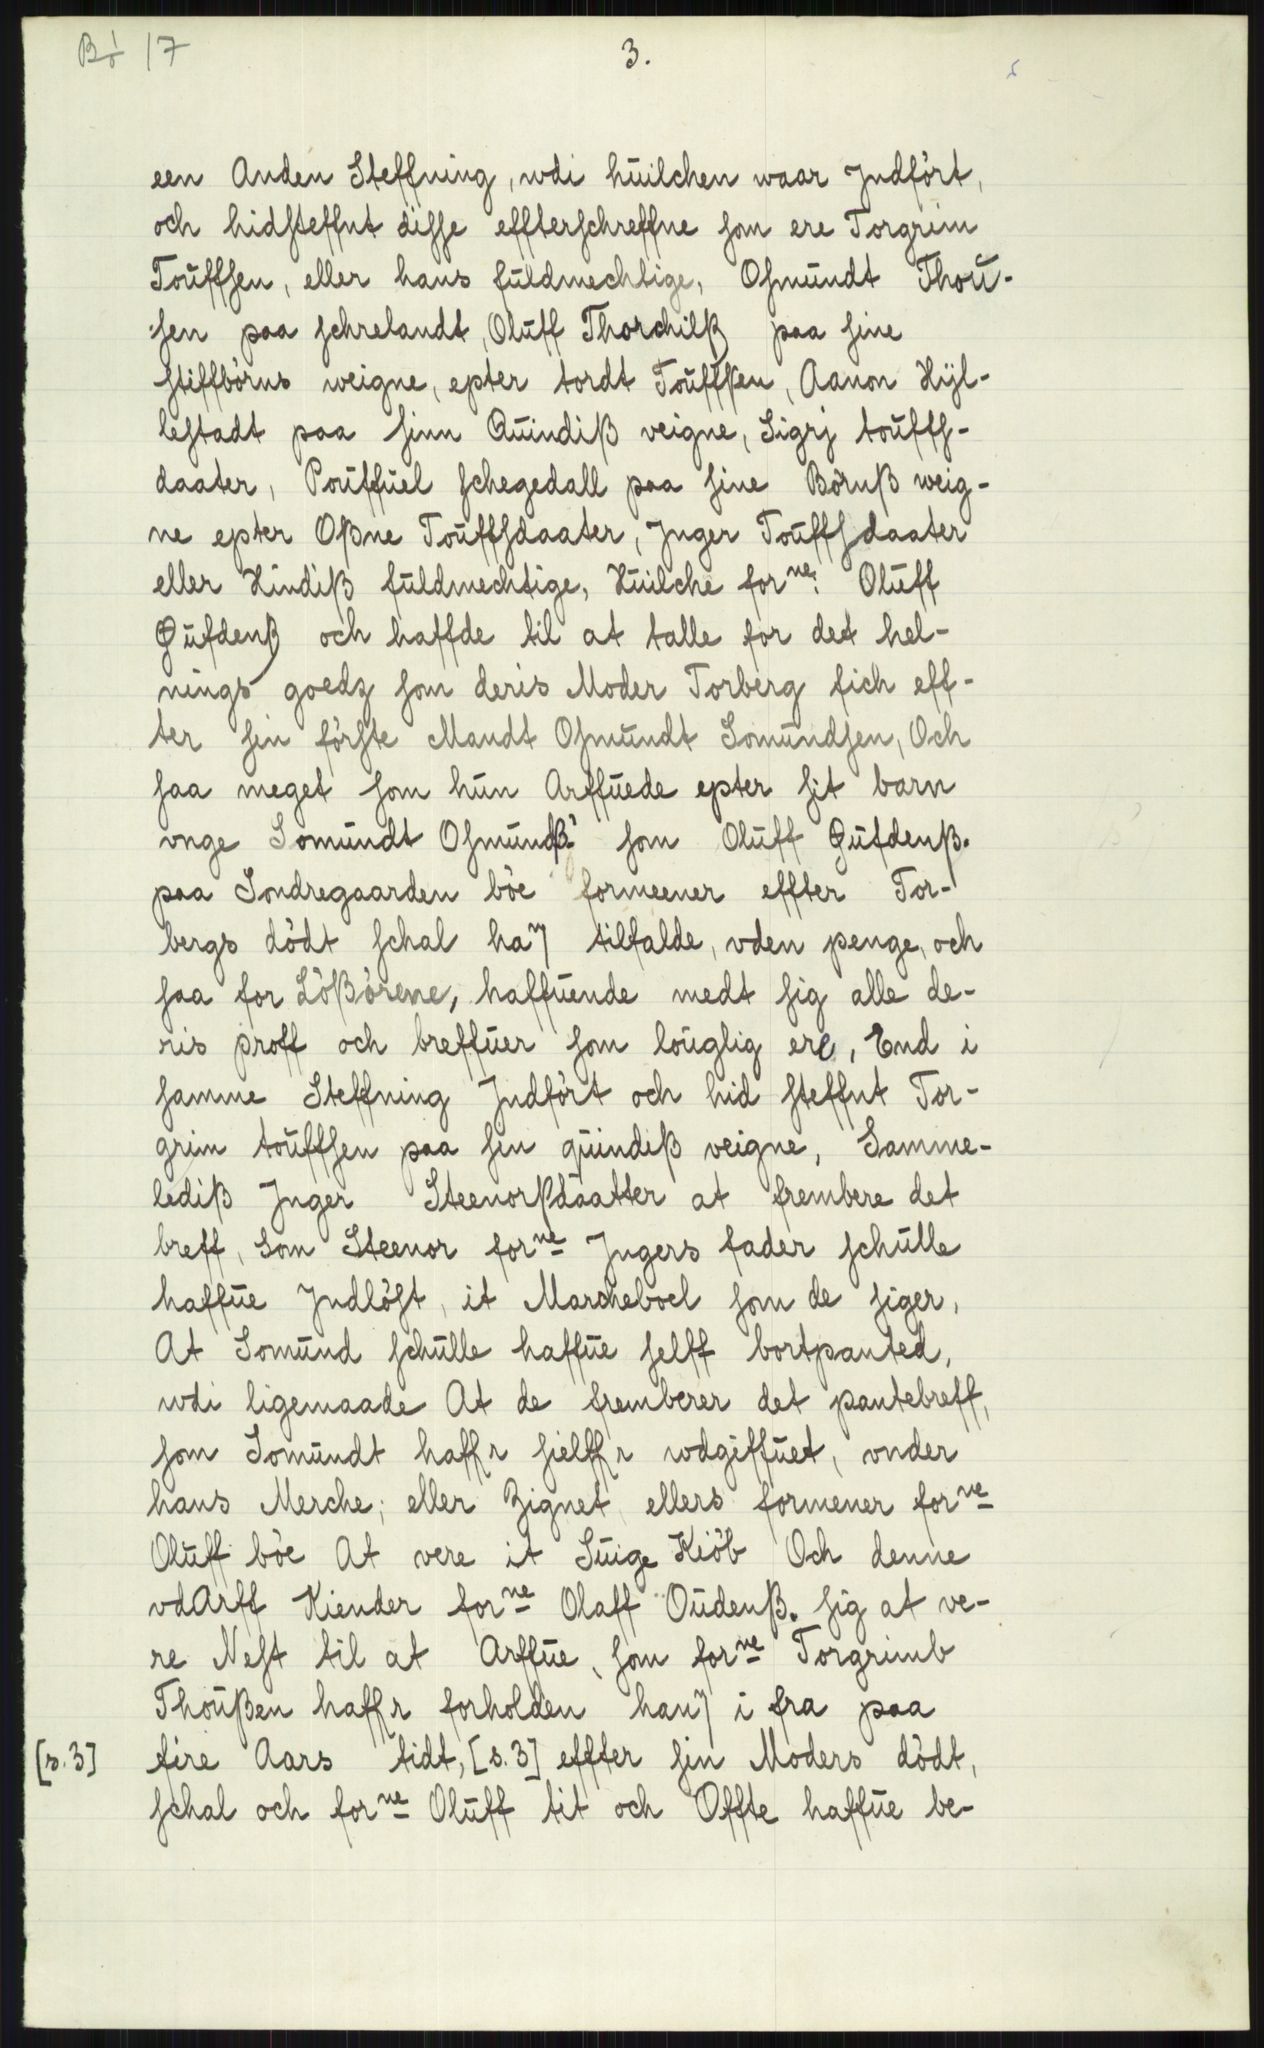 Bø 17
3.
een Anden Steffning, wdi huilchen waar Jndført,
och hidsteffnt disse effterschreffne som ere Torgrim
Touffsen, eller hans fuldmechtige, Osmundt Thou-
sen paa schrelandt, Oluff Thorchilß paa sine
stiffbørns weigne, epter tordt Touffsen, Aanon Hyl-
lestadt paa sinn Quindiß veigne, Sigrj touffs-
daater, Pouffuel schegedall paa sine Børnß weig-
ne epter Oßne Touffsdaater, Jnger Touffsdaater
eller Hindiß fuldmechtige, Huilche forne: Oluff
Gufdenß och haffde til at talle for det hel-
nings goedz som deris Moder Torberg fich eff-
ter sin første Mandt Osmundt Somundsen, Och
saa meget som hun Arffuede epter sit barn
vnge Somundt Osmundß: som Oluff Gufdenß.
paa Sondregaarden bøe formeener effter Tor-
bergs dødt schal hañ tilfalde, vden penge, och
saa for Løßørene, haffuende medt sig alle de-
ris proff och breffuer som louglig ere, End i
samme Steffning Jndført och hid steffnt Tor-
grim touffsen paa sin quindiß veigne, Samme-
lediß Jnger Steenorßdaatter at frembere det
breff, som Steenor forne Jngers fader schulle
haffue Jndløst, it Marcheboel som de siger,
At Somund schulle haffue selff bortpanted,
wdi ligemaade At de fremberer det pantebreff,
som Somundt haffr sielffr wdgiffuet, vnder
hans Merche; eller Zignet ellers formener forne
Oluff bøe At vere it Suige Kiøb Och denne
vdArff Kiender forne Olaff Oudenß. sig at ve-
re Nest til at Arffue, som forne Torgrimb
Thoußen haffr forholden hanñ i fra paa
[s. 3] fire Aars tidt, [s. 3] effter sin Moders dødt,
schal och forne Oluff tit och Offte haffue be-